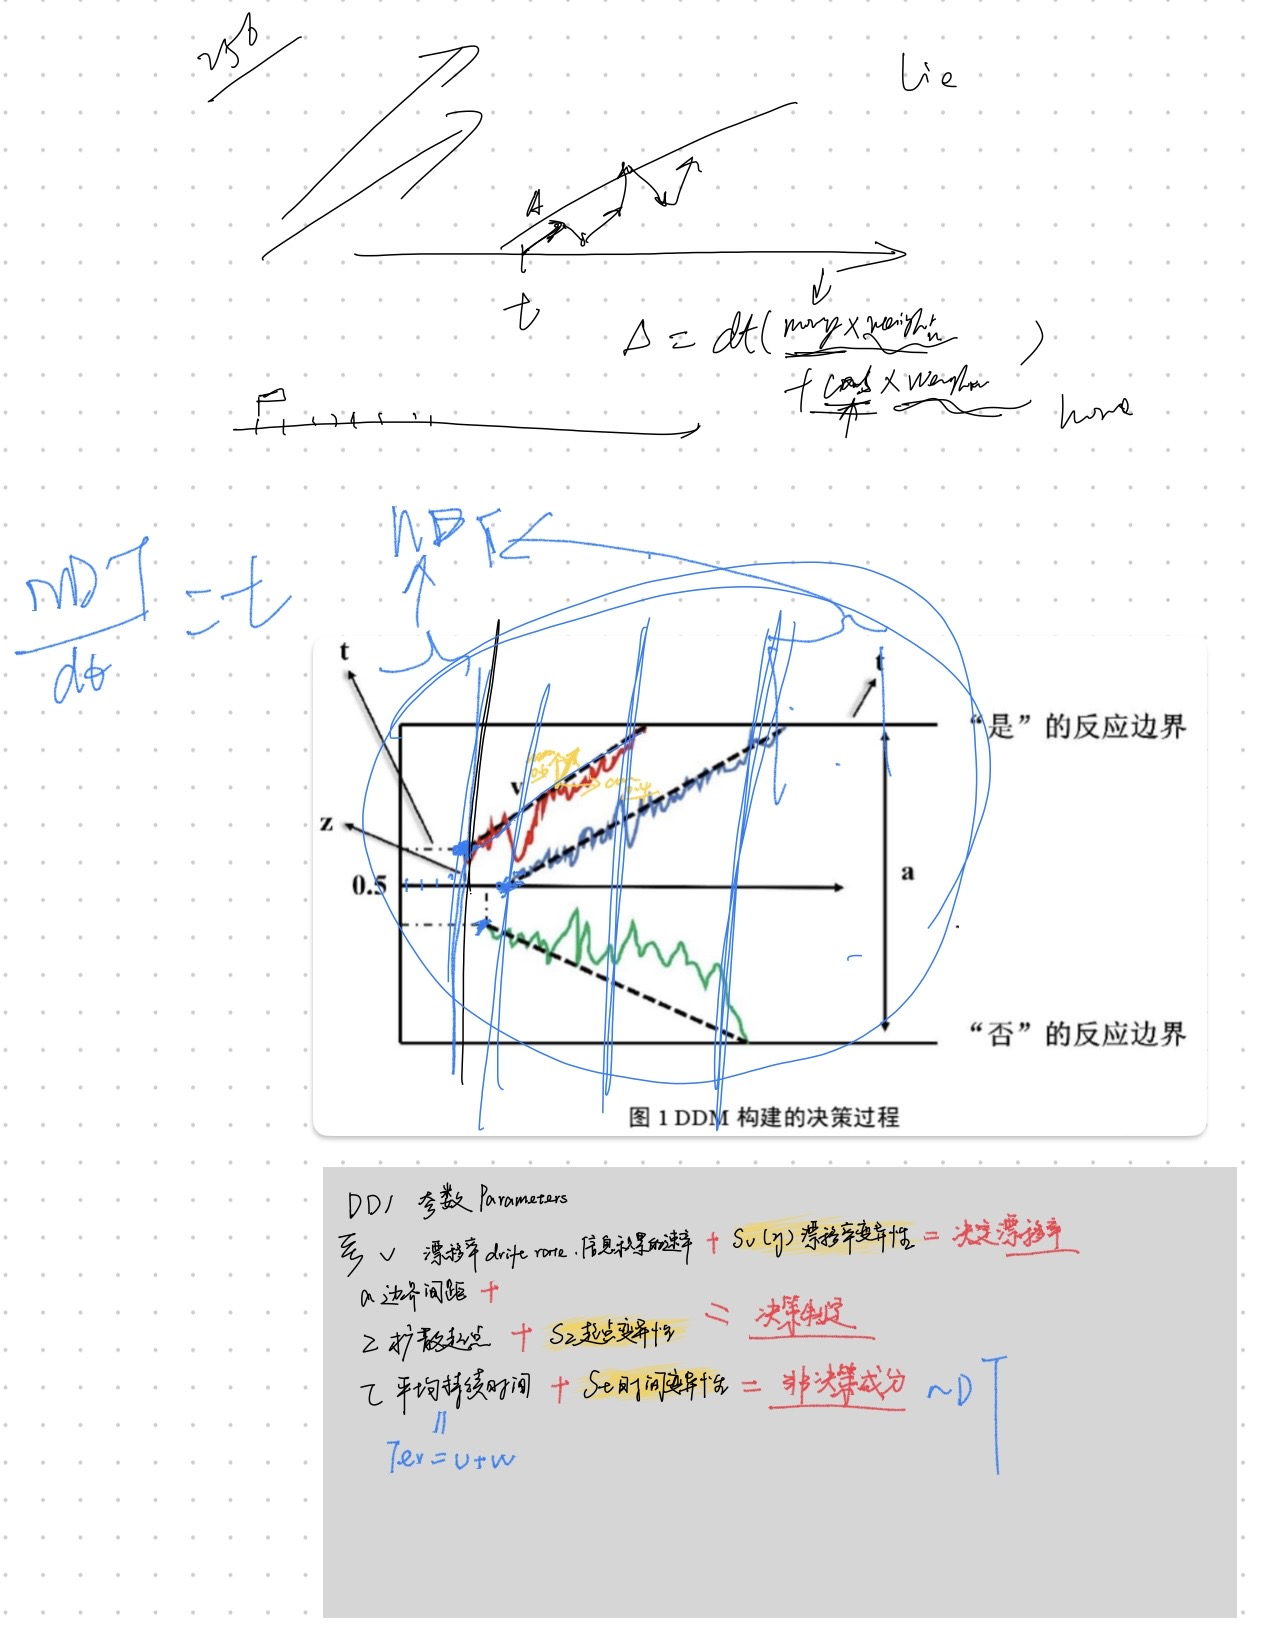 256
Lie
A
t
Δ = dt( money × weight )
+ × weight
NDT
NDT/dt = t
t
t
“是”的反应边界
v
z
0.5
a
“否”的反应边界
图 1 DDM 构建的决策过程
参数 Parameters
v 漂移率 drift rate. 信息积累的速率 + Sv(η) 漂移率变异性 = 决定漂移率
a 边界间距 +
z 扩散起点 + Sz 起点变异性 = 决策制定
τ 平均持续时间 + St 时间变异性 = 非决策成分 ~DT
Ter = u+w